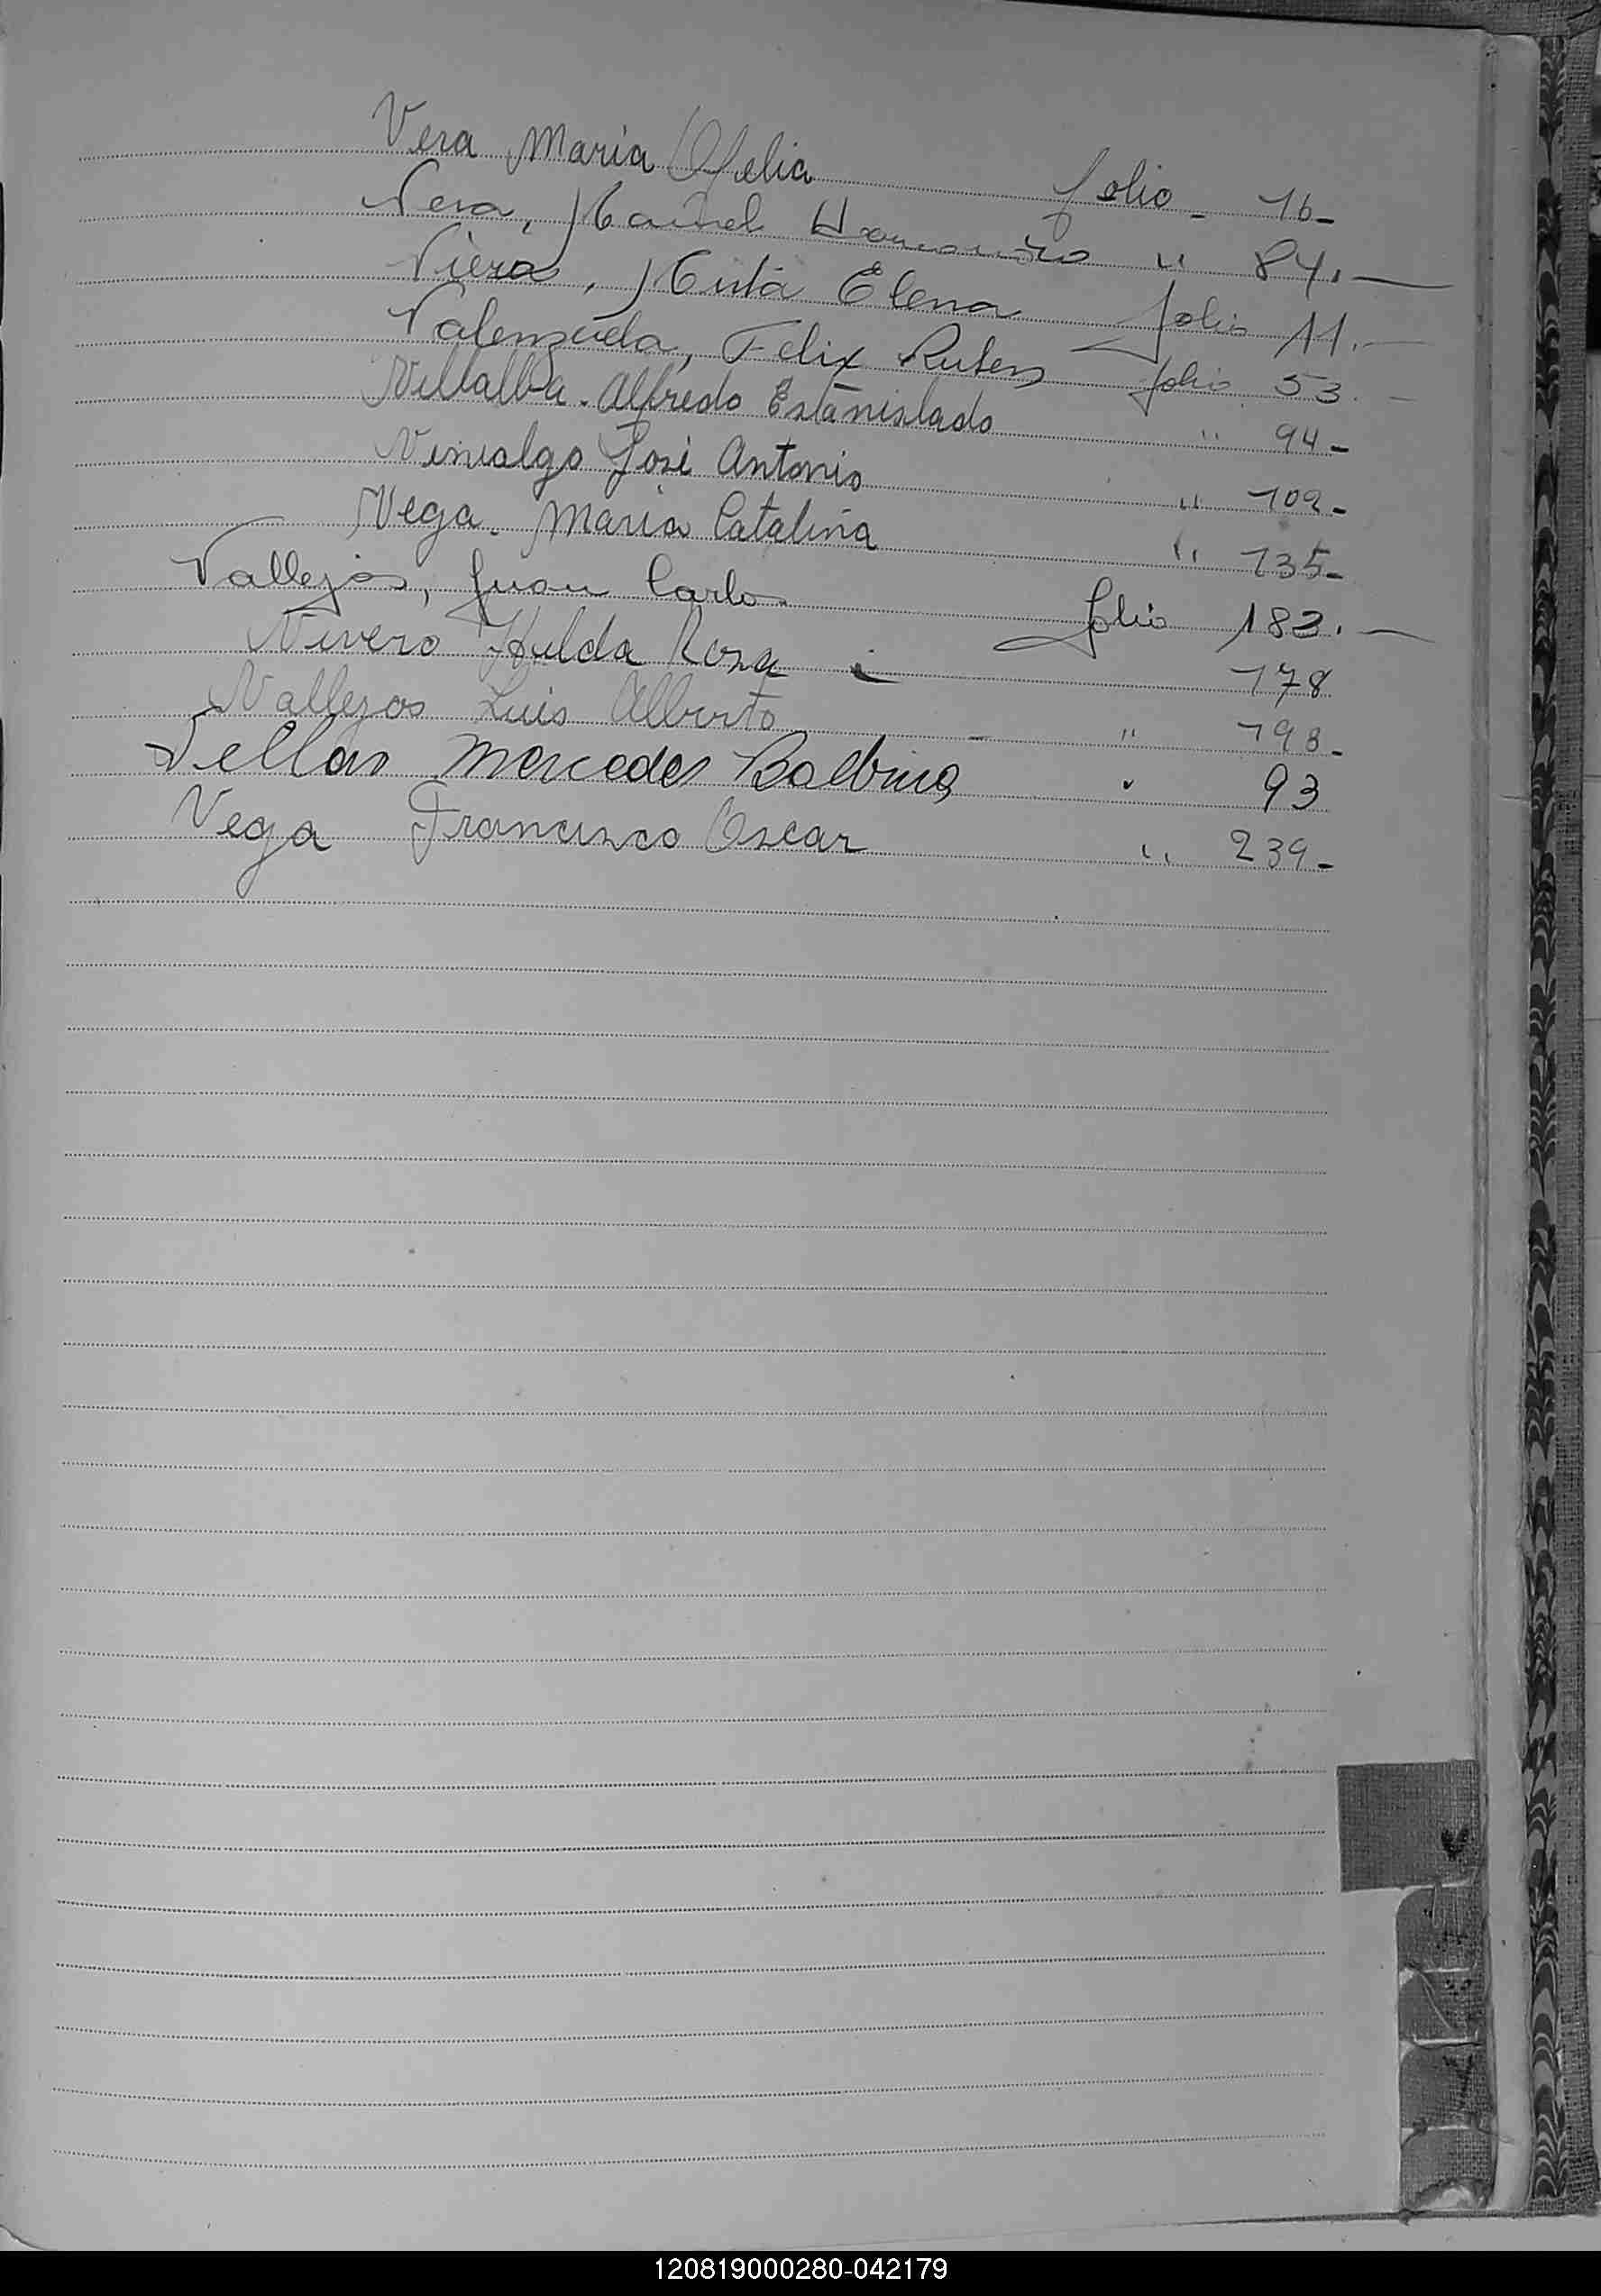 Vera Maria Ofelia folio - 16-
Vera, Ramón " 84.-
Viera, Mirta Elena folio 11.-
Valenzuela, Felix Ruben folio 53.-
Villalba. Alfredo Estanislado " 94-
Vinialgo José Antonio " 102-
Vega. Maria Catalina " 135-
Vallejos, Juan Carlos folio 183.-
Vivero Hulda Rosa 178
Vallejos Luis Alberto - " 198-
Mercedes Balbina " 93
Vega Francisco Oscar " 239-
120819000280-042179